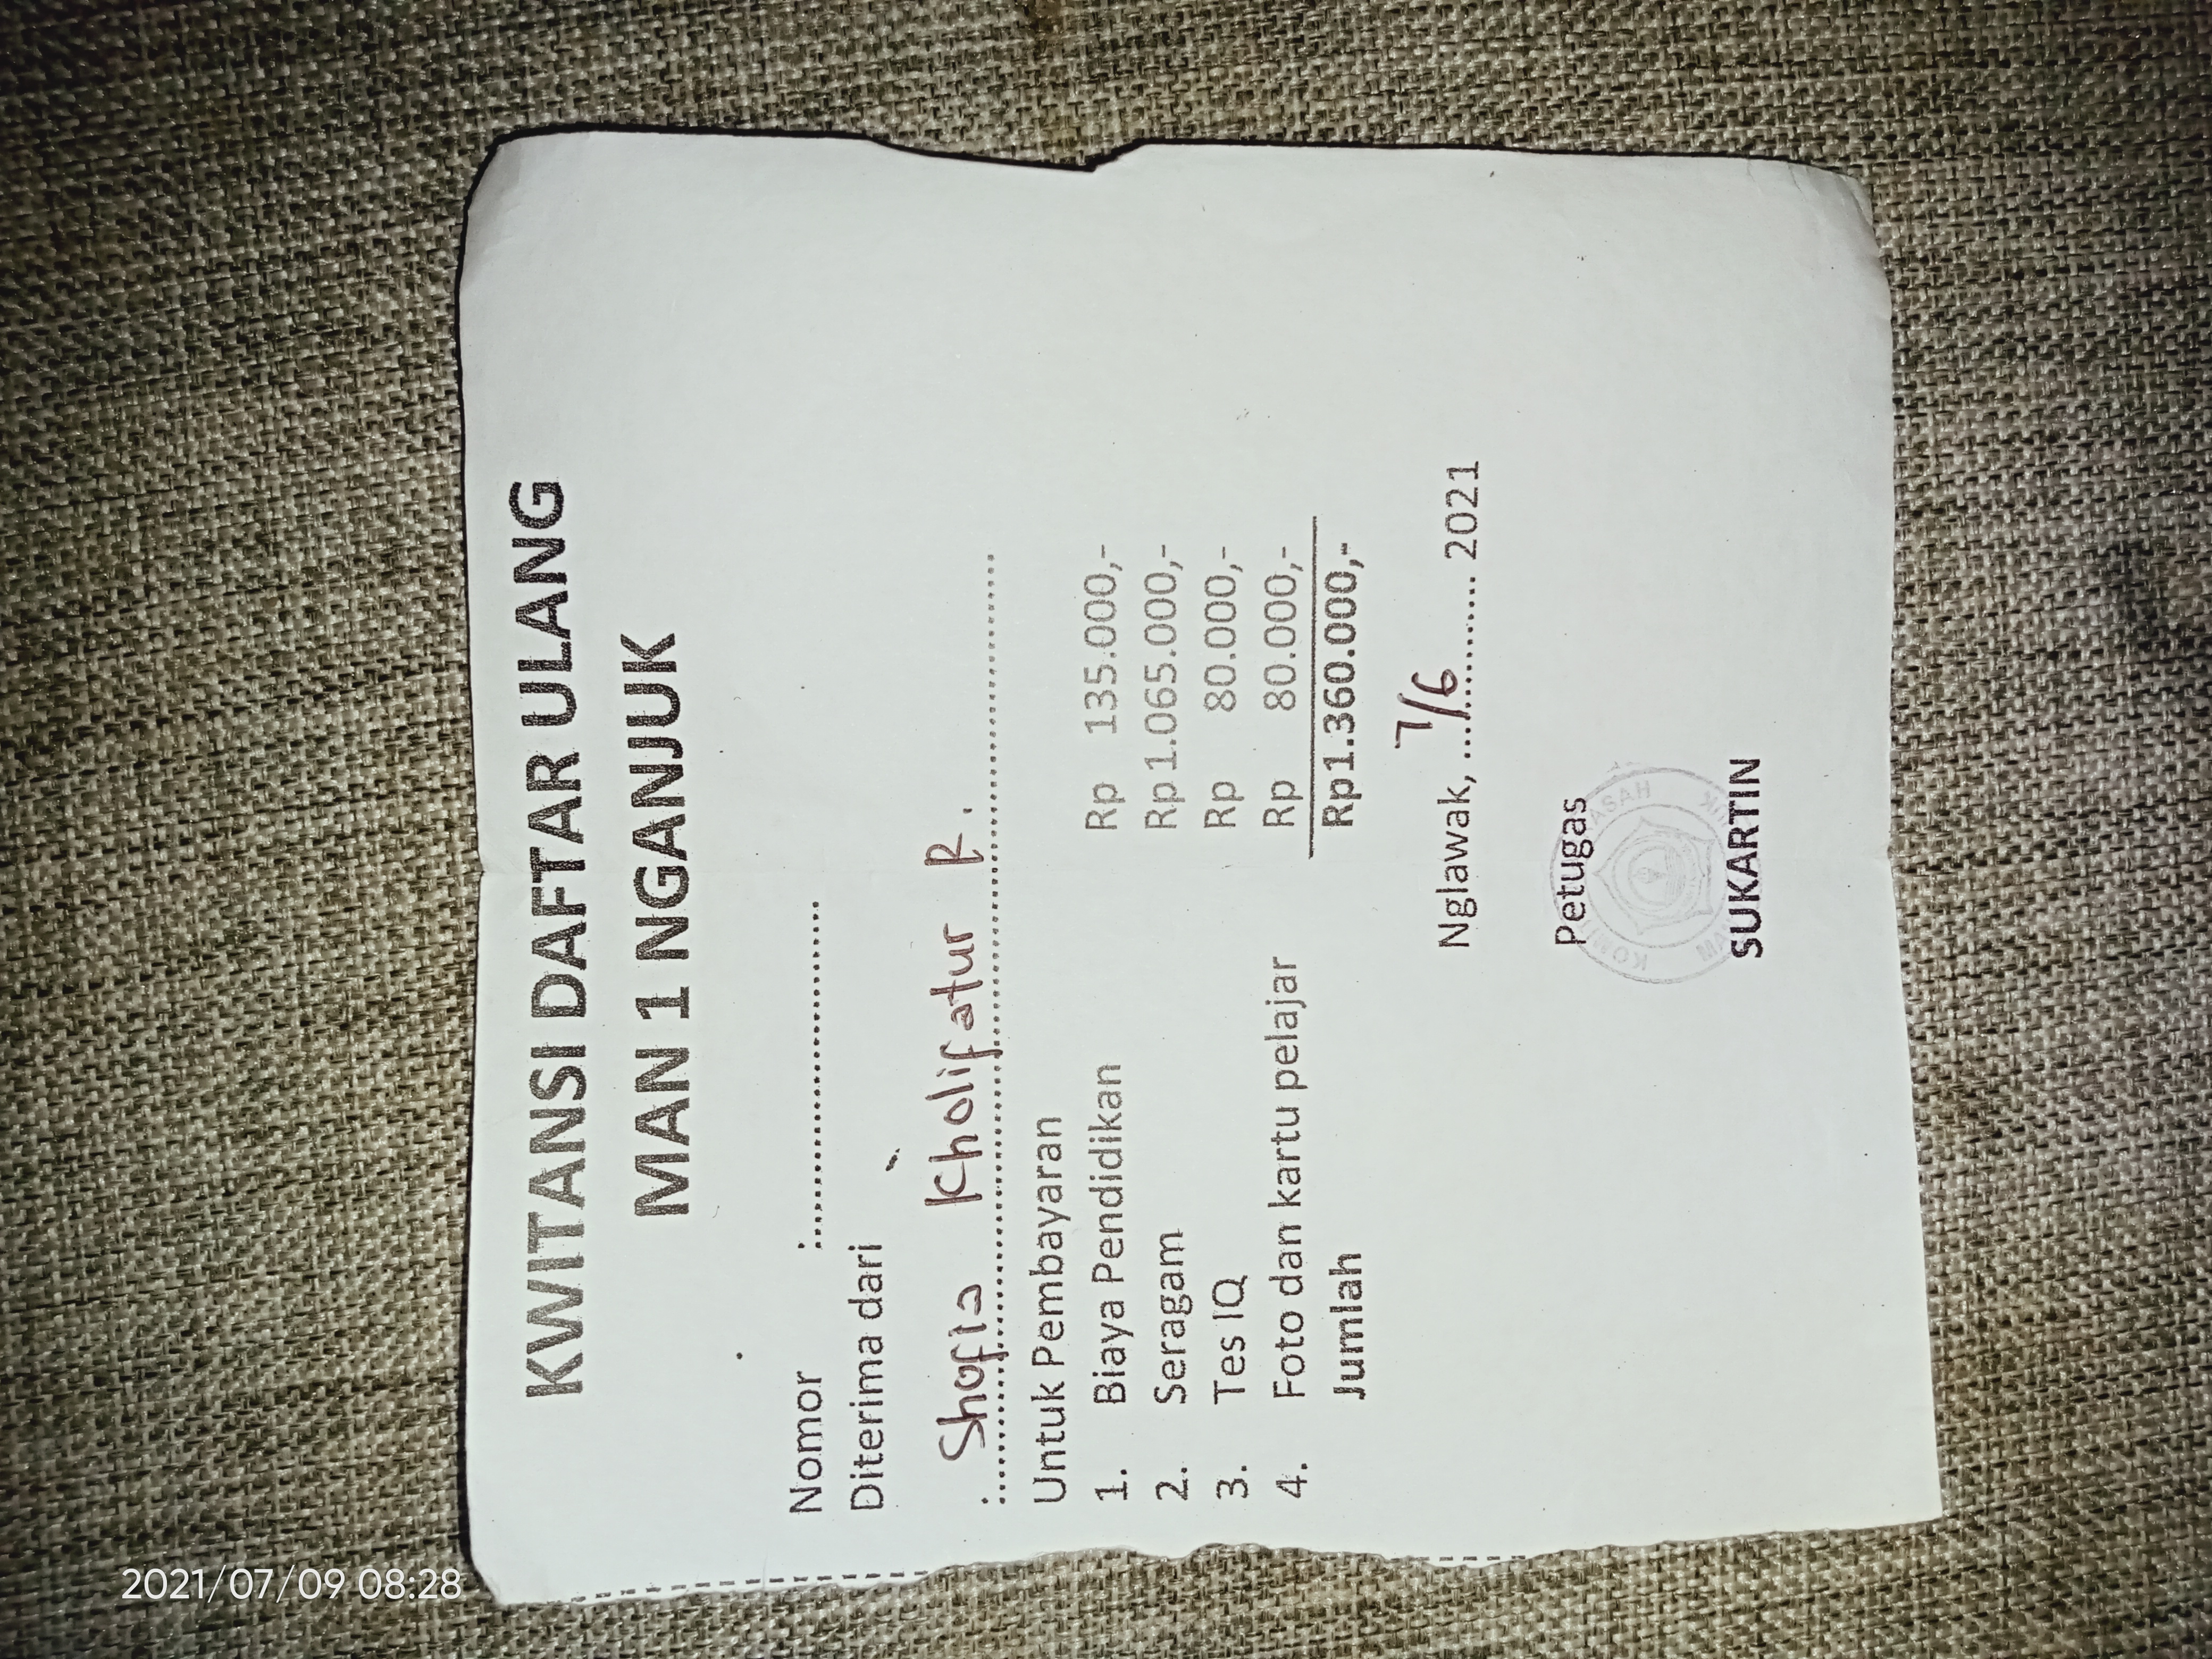 KWITANSI DAFTAR ULANG
MAN 1 NGANJUK
Nomor :..............................
Diterima dari
:....Shofia Kholifatur R.....
Untuk Pembayaran
1. Biaya Pendidikan Rp 135.000,-
2. Seragam Rp 1.065.000,-
3. Tes IQ Rp 80.000,-
4. Foto dan kartu pelajar Rp 80.000,-
Jumlah Rp1.360.000,-
Nglawak, ....7/6.......... 2021
Petugas
SUKARTIN
2021/07/09 08:28